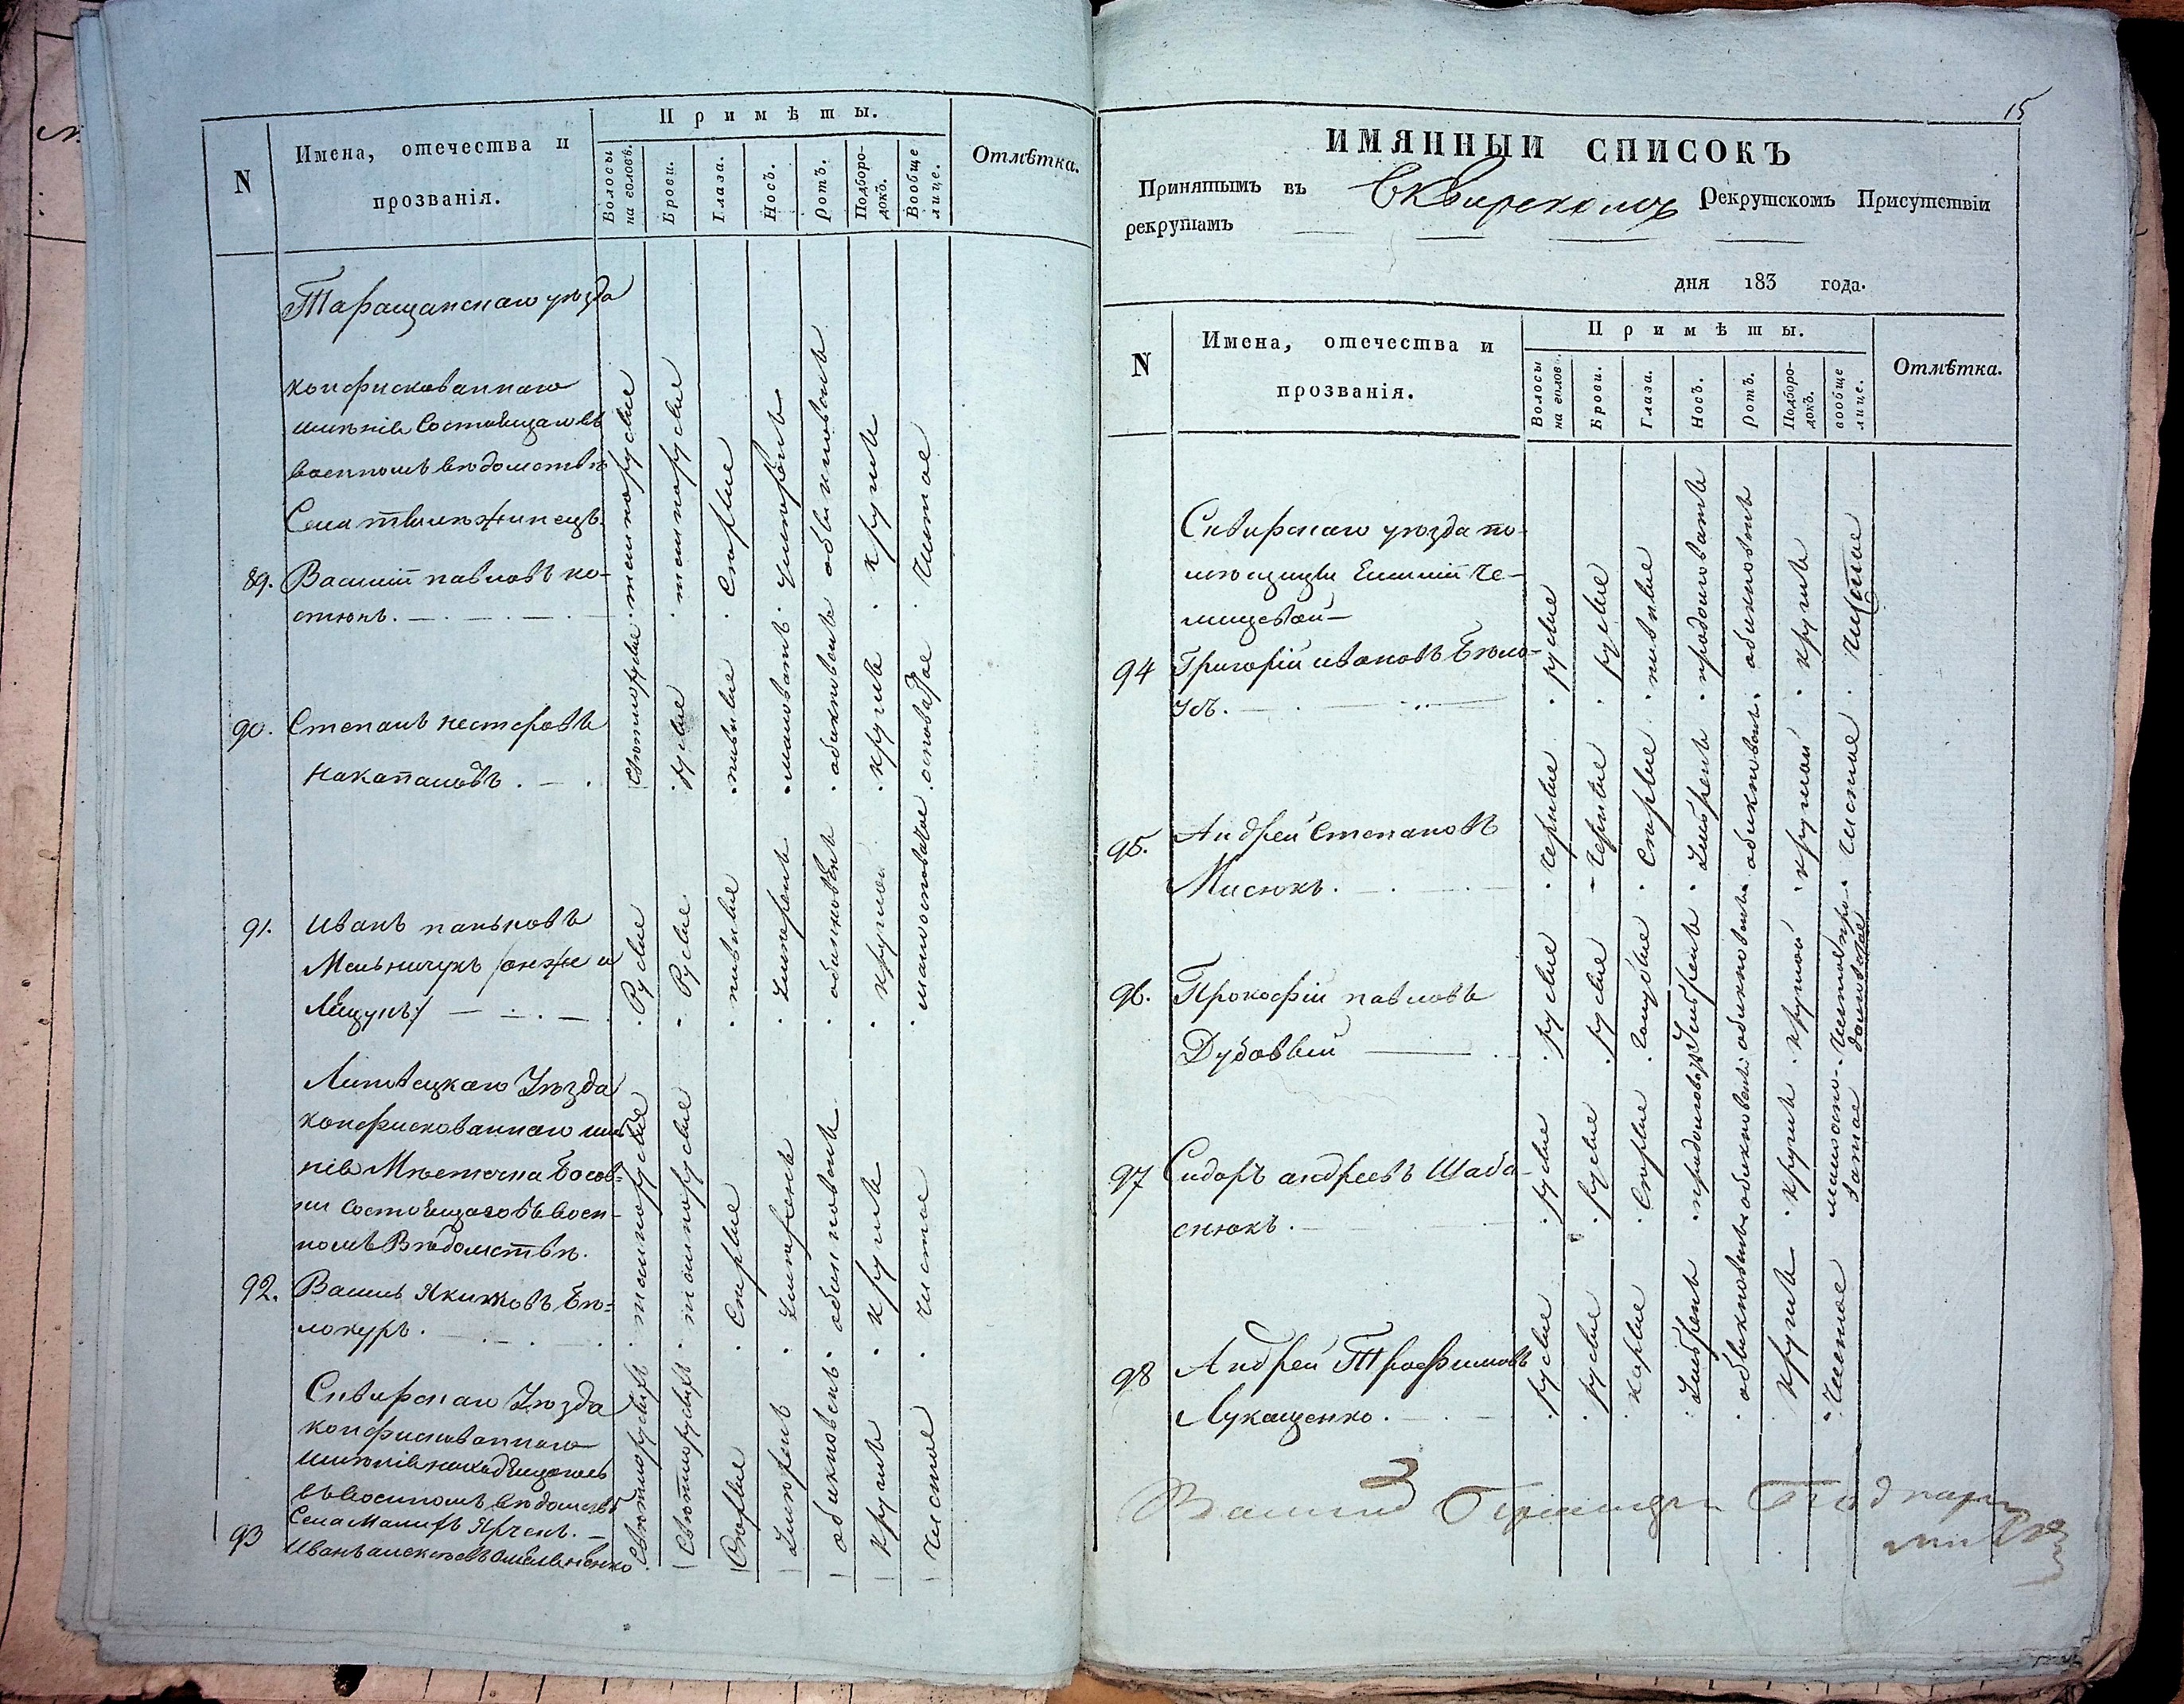 N
Имена, отечества и
прозванія.
Примѣты.
Волосы на головѣ.
Брови.
Глаза.
Носъ.
Ротъ.
Подбородокъ.
Вообще лице.
Отмѣтка.
Таращанскаго уѣзда
конфискованнаго
имѣнія Состоящаго въ
военномъ вѣдомствѣ
89. Василій павловъ ко-
стюкъ. темнорусые темнорусые Сѣрые умѣренъ обыкновенъ круглъ Чистое
90. Степанъ нестеровъ
Свѣтлорусые русые обыкновенъ круглъ
91. Иванъ паньковъ
Мельничукъ /онже и
Лящукъ/ Русые Русые умѣренъ обыкновенъ круглой
Липовецкаго Уѣзда
конфискованнаго имѣ
нія Мѣстечка Босов-
ки Состоящаго въ воен-
номъ Вѣдомствѣ.
92. Василь Якимовъ Бѣ-
локуръ. темнорусые темнорусые Сѣрые умѣренъ обыкновенъ круглъ Чистое
Сквирскаго Уѣзда
конфискованнаго
имѣнія находящагося
въ военномъ вѣдомствѣ
Села Малихъ Ярчекъ.
93 Иванъ алексѣевъ Свѣтлорусыя Свѣтлорусыя Сѣрые умѣренъ обыкновенъ круглъ Чистое
15
ИМЯННЫЙ СПИСОКЪ
Принятымъ въ Сквирскомъ Рекрутскомъ Присутствіи
рекрутамъ
дня 183 года.
N
Имена, отечества и
прозванія.
Примѣты.
Волосы на голов.
Брови.
Глаза.
Носъ.
Ротъ.
Подбородокъ.
вообще лице.
Отмѣтка.
Сквирскаго уѣзда по-
мѣщицы
94 Григорій ивановъ Бѣло-
усъ. русые русые продолговатъ обыкновенъ круглъ Чистое
95. Андрей Степановъ
Мисюкъ. черные черные Сѣрые умѣренъ обыкновенъ круглой Чистое
96. Прокофій павловъ
Дубовый русые русые умѣренъ обыкновенъ круглой
97 Сидоръ андреевъ Шаба-
снюкъ. русые русые Сѣрые обыкновенъ круглъ
98 Андрей Трофимовъ
Лукащенко. русые русые карые умѣренъ обыкновенъ круглъ Чистое